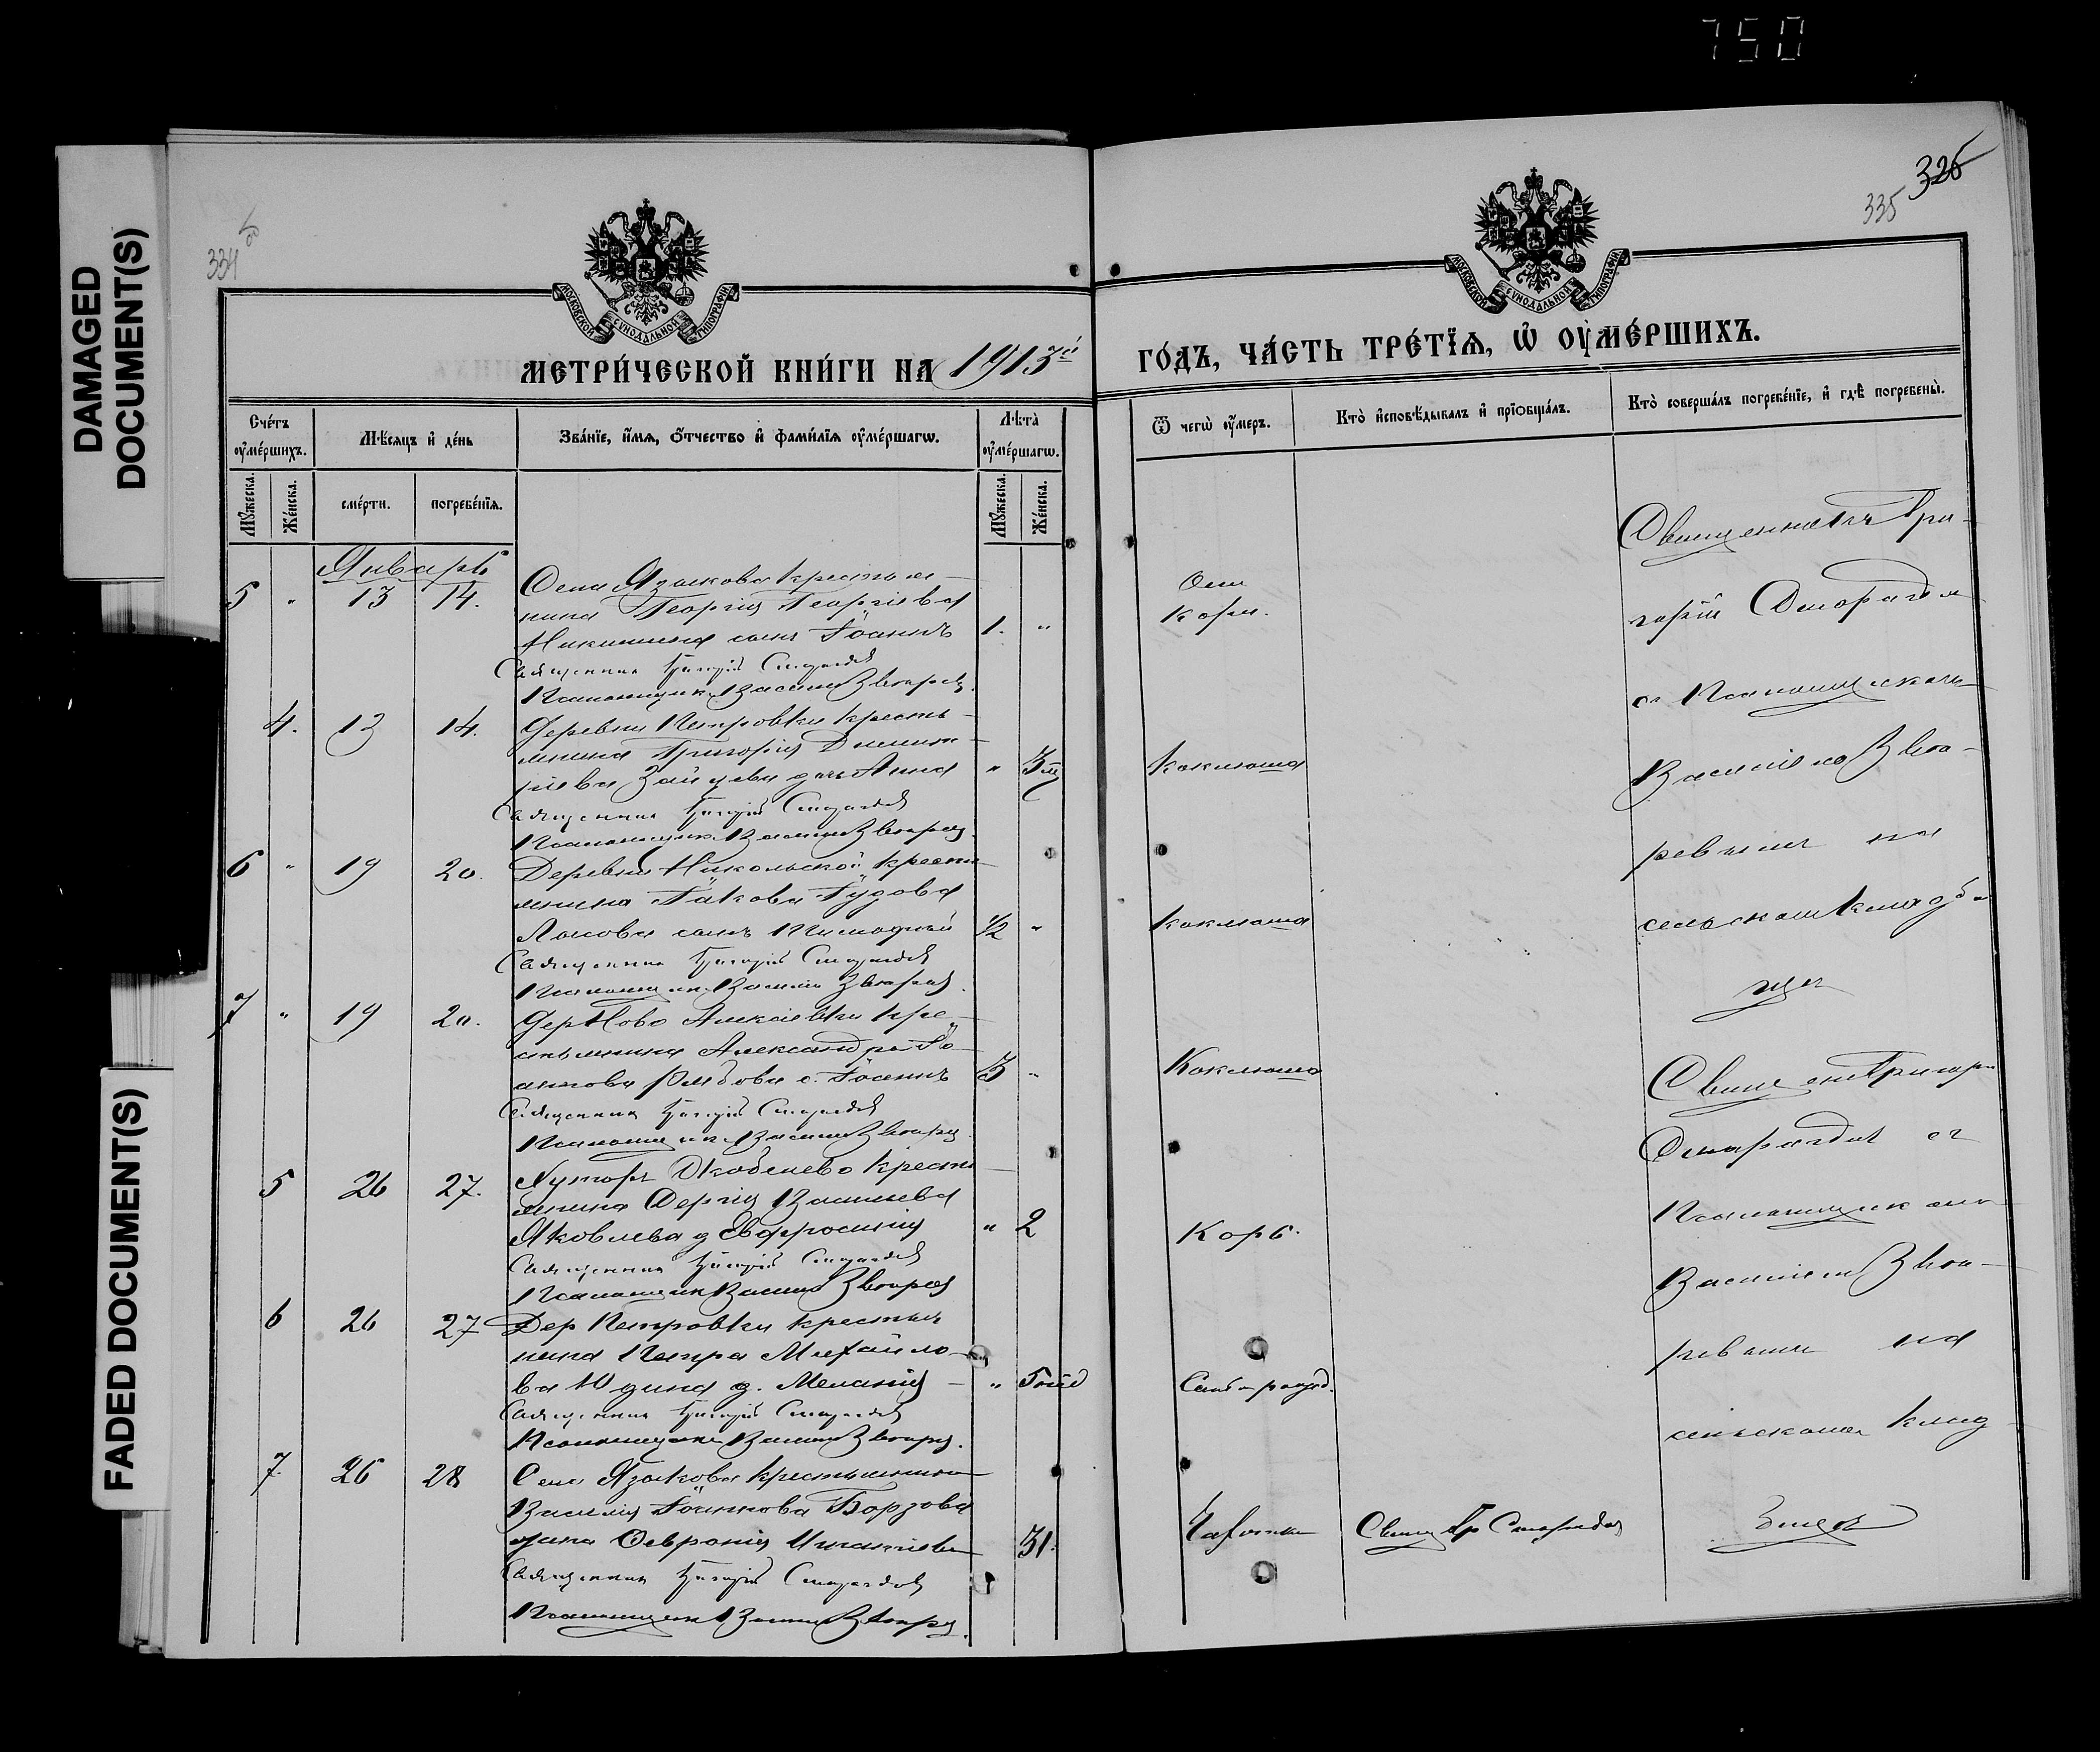 750
DAMAGED
DOCUMENT(S)
FADED DOCUMENT(S)
334 об
МОСКОВСКОЙ СѴНОДАЛЬНОЙ ТИПОГРАФІИ
МЕТРИ́ЧЕСКОЙ КНИ́ГИ НА 1913й
Сче́тъ ᲂу҆ме́ршихъ.
Мѣ́сяцъ и҆ де́нь
Зва́нїе, и҆́мѧ, ѻ҆́тчество и҆ фами́лїѧ ᲂу҆ме́ршагѡ.
Лѣ́та ᲂу҆ме́ршагѡ.
Мꙋ́жеска. Же́нска.
сме́рти. погребе́нїѧ.
Мꙋ́жеска. Же́нска.
Январь
5 " 13 14. Села Языкова крестья-
нина Георгія Георгіева
Никишина сынъ Іоаннъ 1. "
Священникъ Григорій Смарагдов
Псаломщикъ Василій Звѣрев.
4. 13 14. Деревни Петровки кресть-
янина Григорія Димит-
ріева Зайцева дочь Анна " 3 м
Священникъ Григорій Смарагдов
Псаломщикъ Василій Звѣрев.
6 " 19 20. Деревни Никольской крест
янина Іакова
сынъ 1/2 "
Священникъ Григорій Смарагдов
Псаломщикъ Василій Звѣрев.
7 " 19 20. Дер Ново Алексѣевки кре-
стьянина Александра Іо-
аннова с. Іоаннъ 3 "
Священникъ Григорій Смарагдов
Псаломщикъ Василій Звѣрев
5 26 27. Хутора крест
янина Сергія Васильева
Яковлева д Евфросинія " 2
Священникъ Григорій Смарагдов
Псаломщикъ Василій Звѣрев
6 26 27 Дер Петровки крестья
нина Петра Михайло-
ва Юдина д. Меланія "
Священникъ Григорій Смарагдов
Псаломщикъ Василій Звѣрев.
7. 26 28 Села Языкова крестьянина
Василія Іоаннова Борзова
жена Феврония 31.
Священникъ Григорій Смарагдов
Псаломщикъ Василій Звѣрев.
325
335
МОСКОВСКОЙ СѴНОДАЛЬНОЙ ТИПОГРАФІИ
ГО́ДЪ, ЧА́СТЬ ТРЕ́ТЇѦ, Ѡ҆ ОУ҆МЕ́РШИХЪ.
Ѿ чегѡ̀ ᲂу҆́меръ.
Кто̀ и҆сповѣ́дывалъ и҆ прїѡбща́лъ.
Кто̀ соверша́лъ погребе́нїе, и҆ гдѣ̀ погребены̀.
Священникъ Гри-
горій Смарагдов
съ Псаломщикомъ
Василіемъ Звѣ-
ревымъ на
сельскомъ кладби
щѣ
Оти
Кори.
Коклюша
Коклюша
Коклюша
Корь.
Чахотки Свящ Гр Смарагдов
Священ Григорій
Смарагдов съ
Псаломщикомъ
Василіемъ Звѣ-
ревымъ на
сельскомъ клад
бищѣ